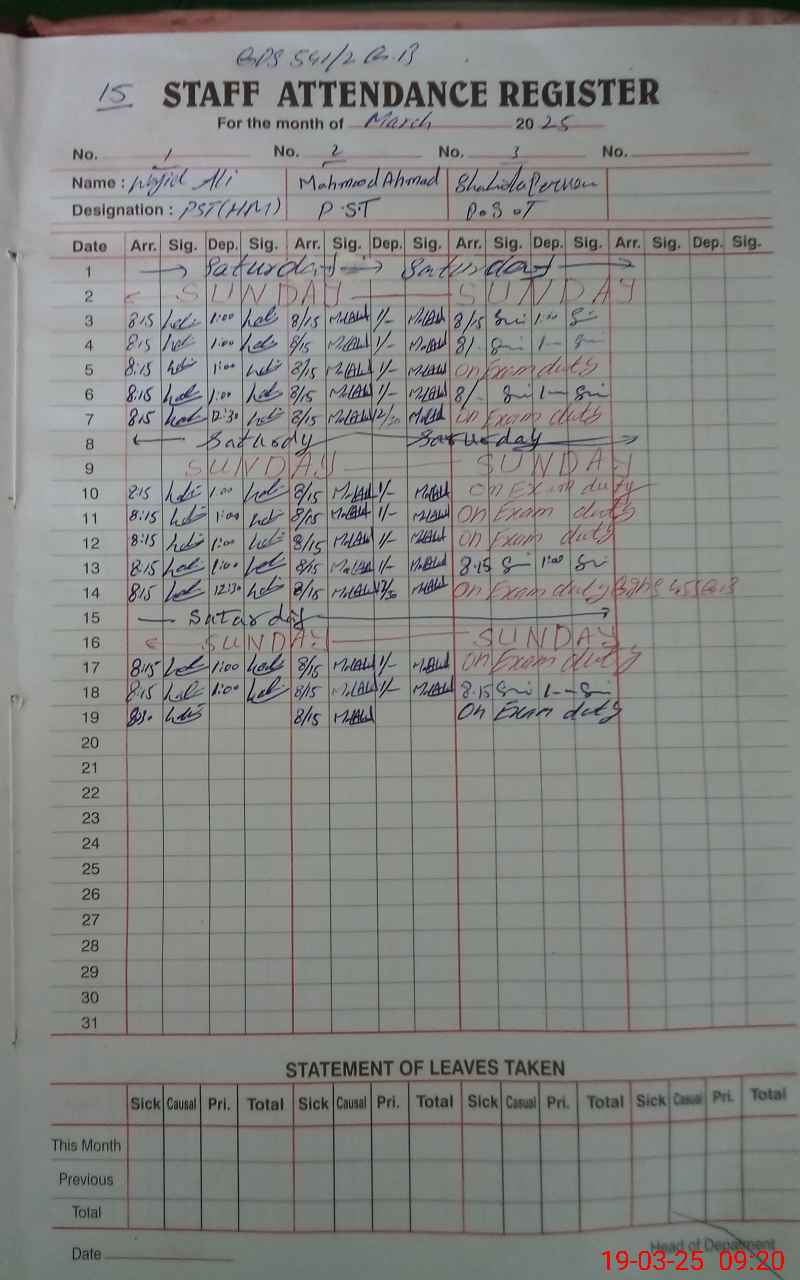 GPS 541/2 G.B
15 STAFF ATTENDANCE REGISTER
For the month of March 2025
No. 1 No. 2 No. 3 No.
Name : Wajid Ali Mahmood Ahmad Shahida Perveen
Designation : PST(HM) P.ST P.S.T
Date Arr. Sig. Dep. Sig. Arr. Sig. Dep. Sig. Arr. Sig. Dep. Sig. Arr. Sig. Dep. Sig.
1 Saturday Saturday
2 SUNDAY SUNDAY
3 8:15 1:00 8/15 1/- 8/15 1:00
4 8:15 1:00 8/15 1/- 8/- 1-
5 8:15 1:00 8/15 1/- On Exam duty
6 8:15 1:00 8/15 1/- 8/- 1-
7 8:15 12:30 8/15 12/30 On Exam duty
8 Saturday Saturday
9 SUNDAY SUNDAY
10 8:15 1:00 8/15 1/- On Exam duty
11 8:15 1:00 8/15 1/- On Exam duty
12 8:15 1:00 8/15 1/- On Exam duty
13 8:15 1:00 8/15 1/- 8:15 1:00
14 8:15 12:30 8/15 12/30 On Exam duty
15 Saturday
16 SUNDAY SUNDAY
17 8:15 1:00 8/15 1/- On Exam duty
18 8:15 1:00 8/15 1/- 8:15 1-
19 8:30 8/15 On Exam duty
20
21
22
23
24
25
26
27
28
29
30
31
STATEMENT OF LEAVES TAKEN
Sick Causal Pri. Total Sick Causal Pri. Total Sick Casual Pri. Total Sick Casual Pri. Total
This Month
Previous
Total
Date
Head of Department
19-03-25 09:20